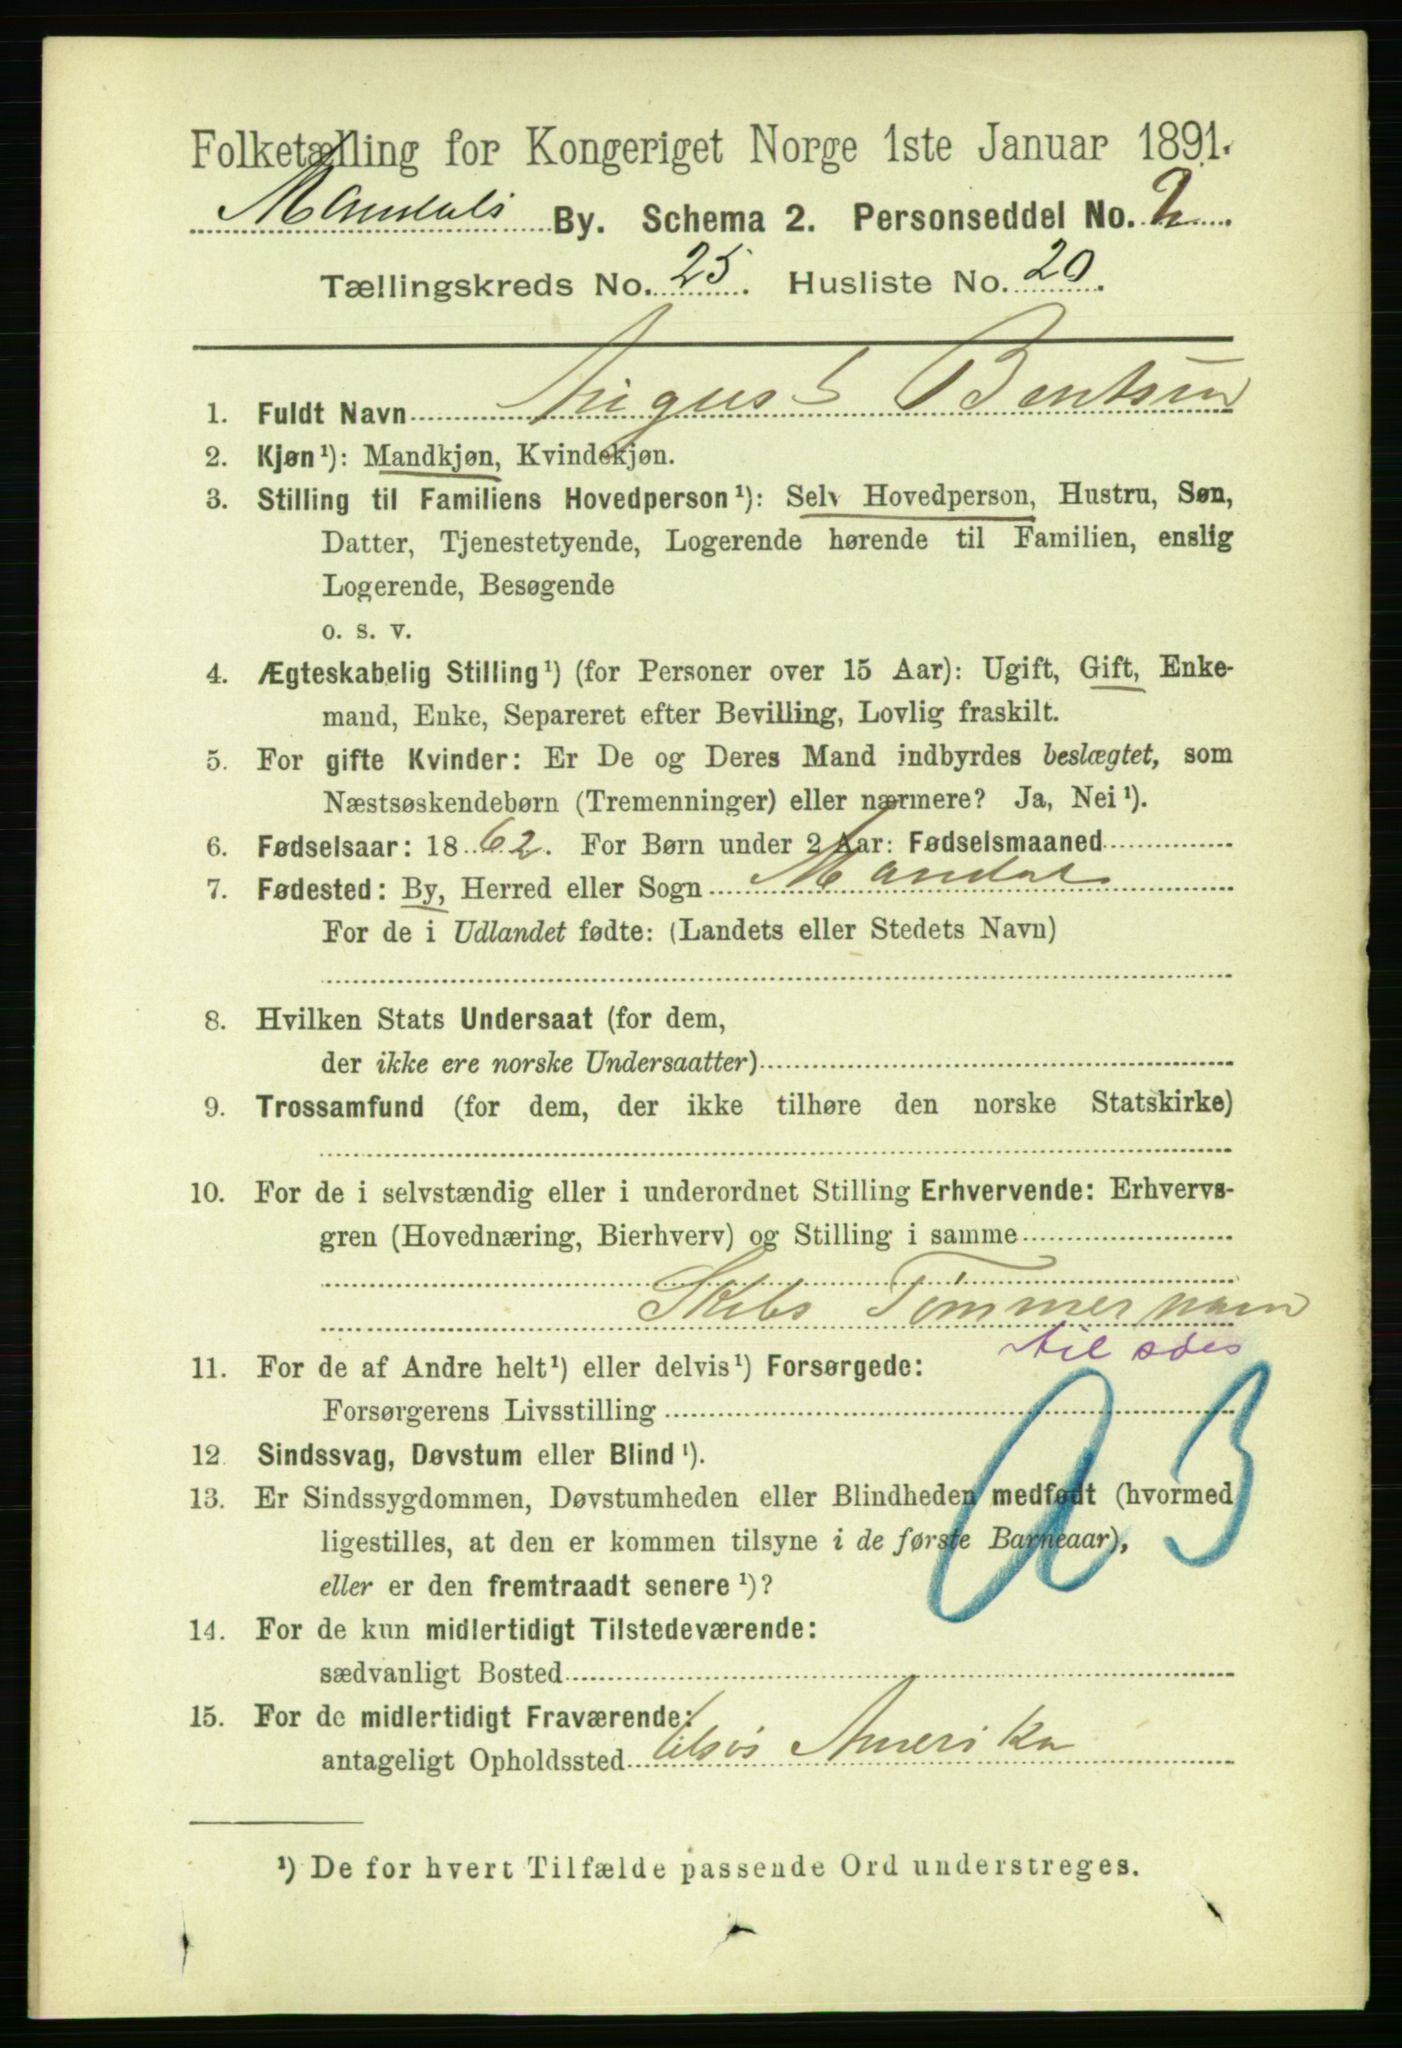 Folketælling for Kongeriget Norge 1ste Januar 1891.
Mandals By. Schema 2. Personseddel No. 2
Tællingskreds No. 25. Husliste No. 20.
1. Fuldt Navn August Bentsen
2. Kjøn¹): Mandkjøn, Kvindekjøn.
3. Stilling til Familiens Hovedperson¹): Selv Hovedperson, Hustru, Søn,
Datter, Tjenestetyende, Logerende hørende til Familien, enslig
Logerende, Besøgende
o. s. v.
4. Ægteskabelig Stilling¹) (for Personer over 15 Aar): Ugift, Gift, Enke-
mand, Enke, Separeret efter Bevilling, Lovlig fraskilt.
5. For gifte Kvinder: Er De og Deres Mand indbyrdes beslægtet, som
Næstsøskendebørn (Tremenninger) eller nærmere? Ja, Nei¹).
6. Fødselsaar: 1862. For Børn under 2 Aar: Fødselsmaaned
7. Fødested: By, Herred eller Sogn Mandal
For de i Udlandet fødte: (Landets eller Stedets Navn)
8. Hvilken Stats Undersaat (for dem,
der ikke ere norske Undersaatter)
9. Trossamfund (for dem, der ikke tilhøre den norske Statskirke)
10. For de i selvstændig eller i underordnet Stilling Erhvervende: Erhvervs-
gren (Hovednæring, Bierhverv) og Stilling i samme
Skibs Tømmermam
til søes
11. For de af Andre helt¹) eller delvis¹) Forsørgede:
Forsørgerens Livsstilling
12. Sindssvag, Døvstum eller Blind¹).
13. Er Sindssygdommen, Døvstumheden eller Blindheden medfødt (hvormed
ligestilles, at den er kommen tilsyne i de første Barneaar),
eller er den fremtraadt senere¹)?
14. For de kun midlertidigt Tilstedeværende:
sædvanligt Bosted
15. For de midlertidigt Fraværende:
antageligt Opholdssted Amerika
¹) De for hvert Tilfælde passende Ord understreges.